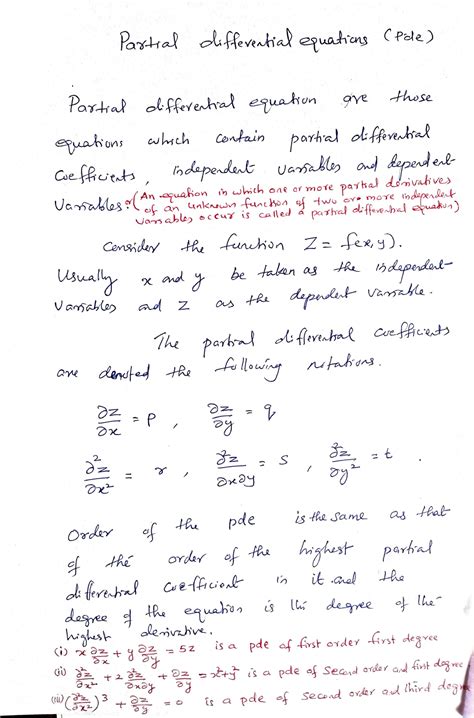 Partial differential equations (Pde)
Partial differential equation are those
equations which contain partial differential
Coefficients, independent variables and dependent
Variables. (An equation in which one or more partial derivatives
of an unknown function of two or more independent
variables occur is called a partial differential equation)
Consider the function Z = f(x,y).
Usually x and y be taken as the independent
Variables and z as the dependent variable.
The partial differential coefficients
are denoted the following notations.
∂z/∂x = p , ∂z/∂y = q
∂²z/∂x² = r , ∂²z/∂x∂y = s , ∂²z/∂y² = t .
Order of the pde is the same as that
of the order of the highest partial
differential coefficient in it and the
degree of the equation is the degree of the
highest derivative.
(i) x ∂z/∂x + y ∂z/∂y = 5z is a pde of first order first degree
(ii) ∂²z/∂x² + 2 ∂²z/∂x∂y + ∂z/∂y = x²+y² is a pde of second order and first degree
(iii) (∂²z/∂x²)³ + ∂z/∂y = 0 is a pde of second order and third degree